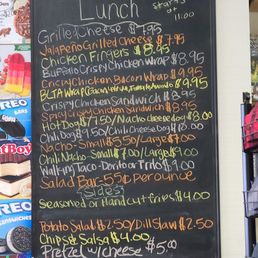 Lunch
Starts at 11:00
Grilled Cheese $7.95
Jalapeño Grilled Cheese $7.95
Chicken Fingers $8.95
Buffalo Crispy Chicken Wrap $8.95
Crispy Chicken Bacon Wrap $8.95
BLTA Wrap $9.95
Crispy Chicken Sandwich $8.95
Spicy Crispy Chicken Sandwich $8.95
Hot Dog $7.50/Nacho cheese dog $8.00
Chili Cheese Dog $8.00
Nacho-Small $5.50/Large $7.00
Chili Nacho-Small $7.00/Large $9.00
Walking Taco-Dorito or Frito $9.00
Salad Bar-55¢ per ounce
Sides
Seasoned or Hand cut fries $4.00
Potato Salad $2.50/Dill Slaw $2.50
Chips & Salsa $4.00
Pretzel w/cheese $5.00
OREO
OREO